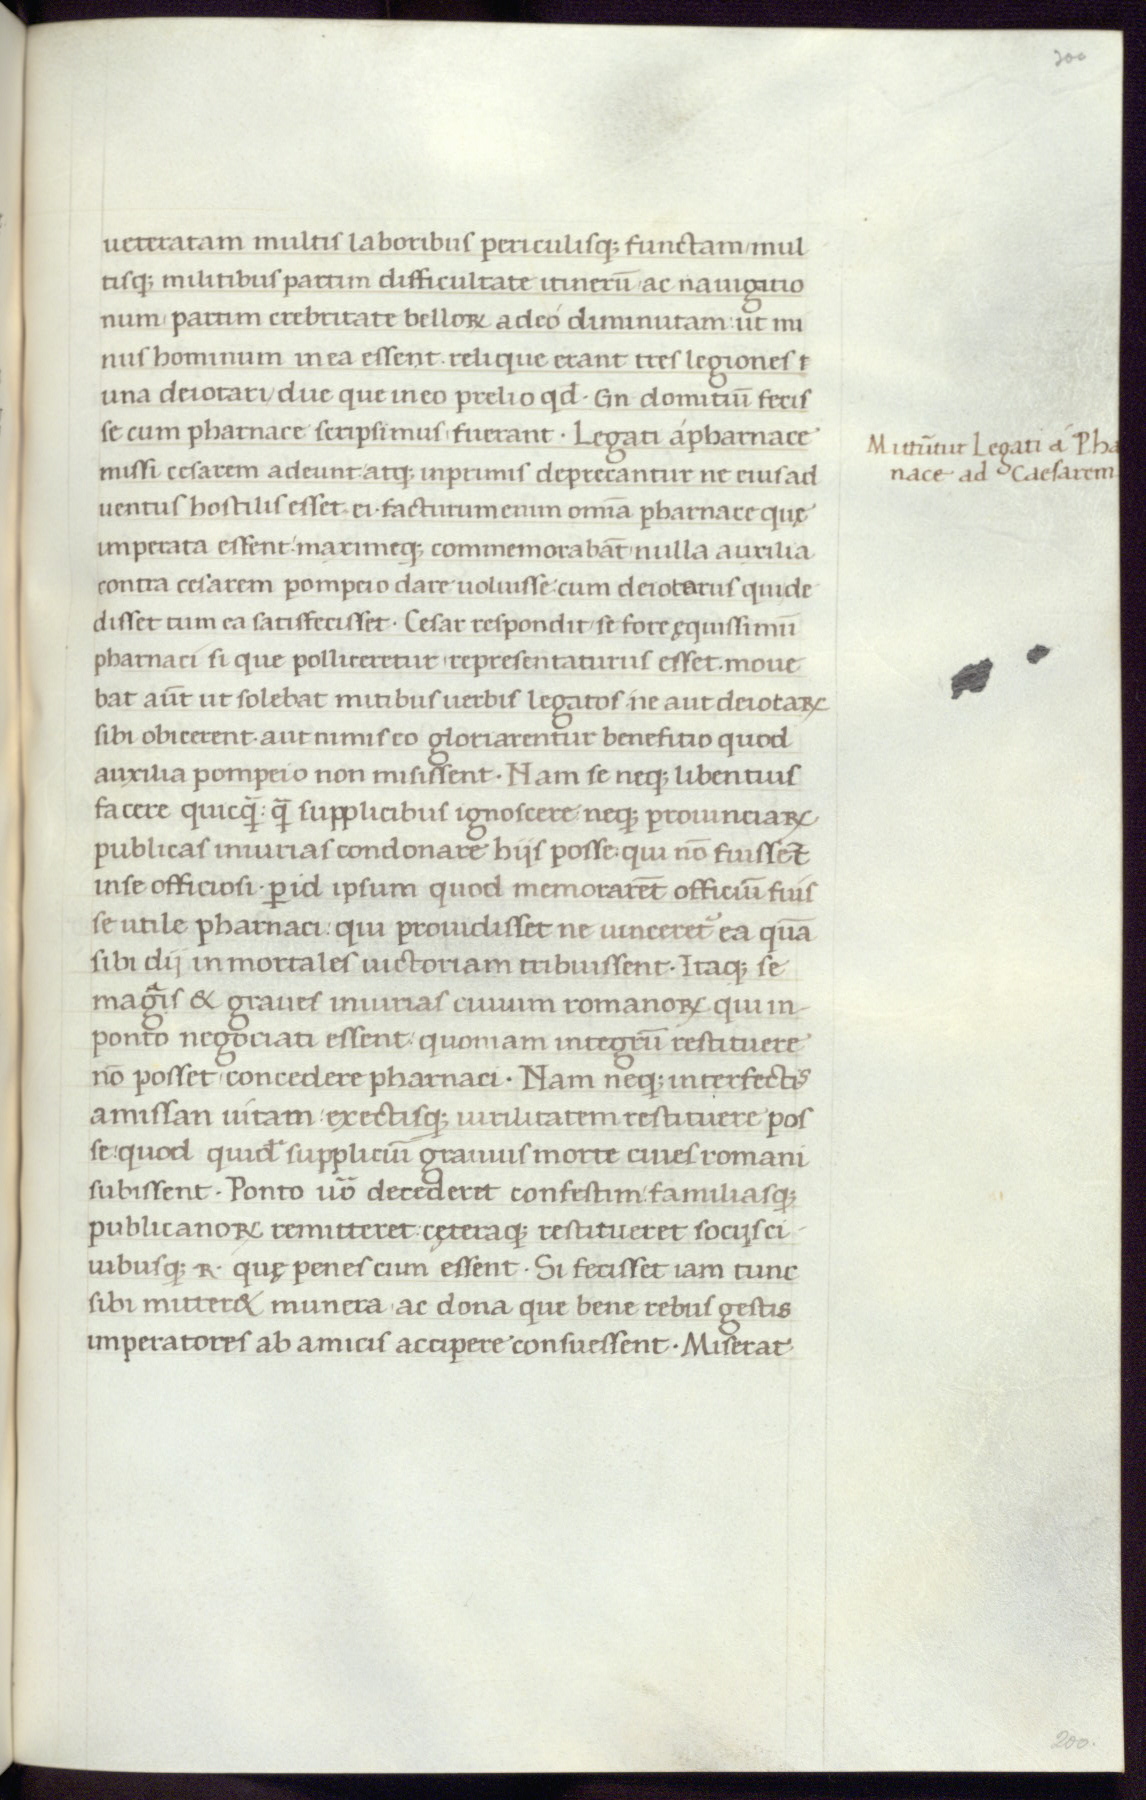 200
ueteratam multis laboribus periculisq; functam/mul
tisq; militibus partim difficultate itinerū ac nauigatio
num partim crebritate belloꝝ adeo diminutam: ut mi
nus hominum in ea essent. relique erant tres legiones
una deiotari/ due que in eo prelio qd̄. Gn domitiū fecis
se cum pharnace scripsimus fuerant. Legati á pharnace
Mittūtur Legati á Pha
nace ad Caesarem
missi cesarem adeunt. atq; inprimis deprecantur ne eius ad
uentus hostilis esset. ei. facturum enim omīa pharnace quę
imperata essent: maximeq; commemorabāt nulla auxilia
contra cesarem pompeio dare uoluisse: cum deiotarus qui de
disset tum ea satisfecisset. Cesar respondit se fore ęquissimū
pharnaci si que polliceretur representaturus esset. moue
bat aūt ut solebat mitibus uerbis legatos ne aut deiotaꝝ
sibi obicerent. aut nimis eo gloriarentur benefitio quod
auxilia pompeio non misissent. Nam se neq; libentius
facere quicq̄: q̄ supplicibus ignoscere neq; prouinciaꝝ
publicas iniurias condonare hijs posse: qui nō fuissēt
in se officiosi. ꝑ id ipsum quod memorarēt officiū fuis
se utile pharnaci: qui prouidisset ne uinceret᷑ ea quā
sibi dij inmortales uictoriam tribuissent. Itaq; se
magīs & graues iniurias ciuium romanoꝝ qui in-
ponto negociati essent: quoniam integrū restituere
nō posset concedere pharnaci. Nam neq; interfectis
amissan uitam: exectisq; uirilitatem restituere pos
se: quod quid̄ suppliciū grauius morte ciues romani
subissent. Ponto uō decederet confestim: familiasq;
publicanoꝝ remitteret: cęteraq; restitueret socijs ci-
uibusq; R. quę penes cum essent. Si fecisset iam tunc
sibi mitter& munera ac dona que bene rebus gestis
imperatores ab amicis accipere consuessent. Miserat
200.